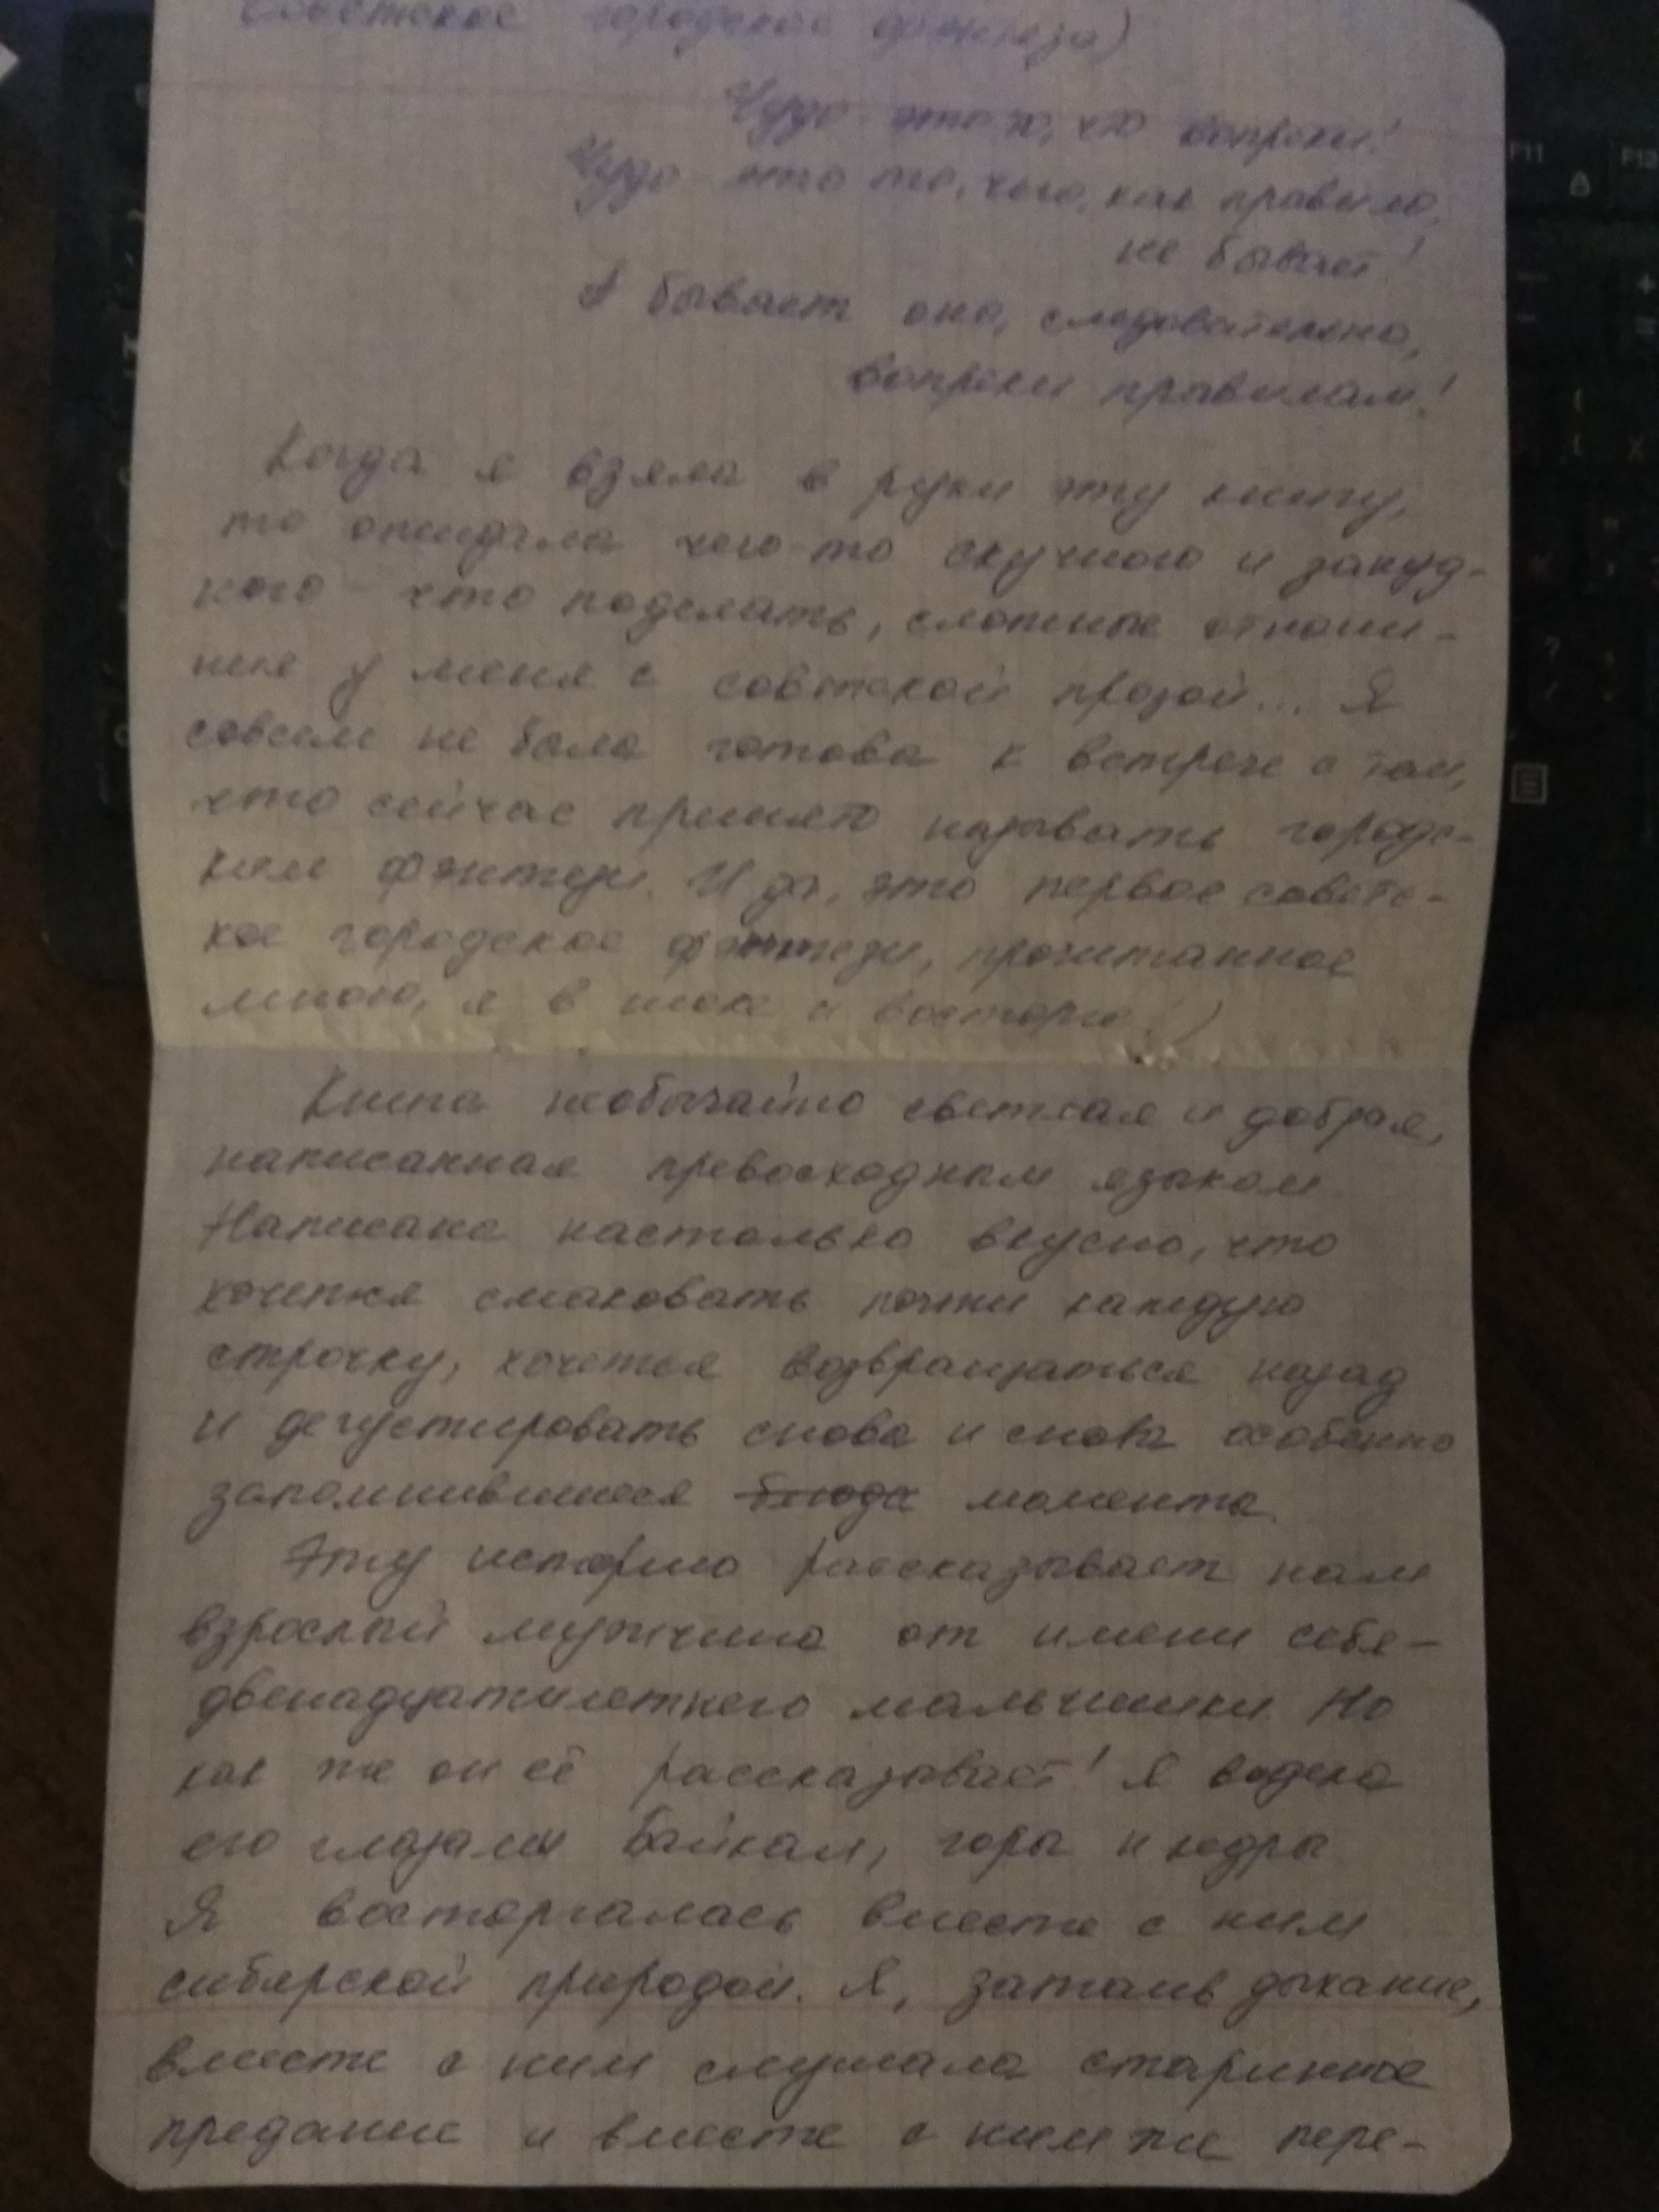 Советское городское фэнтези)
Чудо - это то, что вопреки!
Чудо - это то, чего, как правило,
не бывает!
А бывает оно, следовательно,
вопреки правилам!
Когда я взяла в руки эту книгу,
то ожидала чего-то скучного и зануд-
ного - что поделать, сложные отноше-
ния у меня с советской прозой... Я
совсем не была готова к встрече с тем,
что сейчас принято называть городс-
ким фэнтези. И да, это первое советс-
кое городское фэнтези, прочитанное
мною, я в шоке и восторге!)
Книга необычайно светлая и добрая,
написанная превосходным языком.
Написана настолько вкусно, что
хочется смаковать почти каждую
строчку, хочется возвращаться назад
и дегустировать снова и снова особенно
запомнившиеся блюда моменты.
Эту историю рассказывает нам
взрослый мужчина от имени себя-
двенадцатилетнего мальчишки. Но
как же он её рассказывает! Я видела
его глазами Байкал, горы и кедры
Я восторгалась вместе с ним
сибирской природой. Я, затаив дыхание,
вместе с ним слушала старинное
предание и вместе с ним же пере-